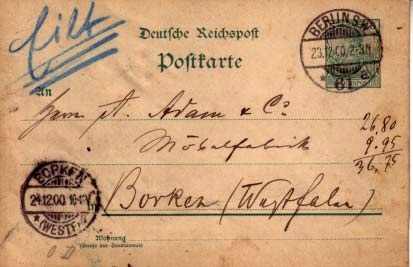 Eilt
Deutsche Reichspost
Postkarte
BERLIN S.W.
23.12.00. 2-3N
* 61 a
An
Herrn A. Adam & Co.
Möbelfabrik
26.80
9.95
36.75
BORKEN
24.12.00. 10-11V
* (WESTF.)
Borken (Westfalen)
Wohnung
(Straße und Hausnummer)